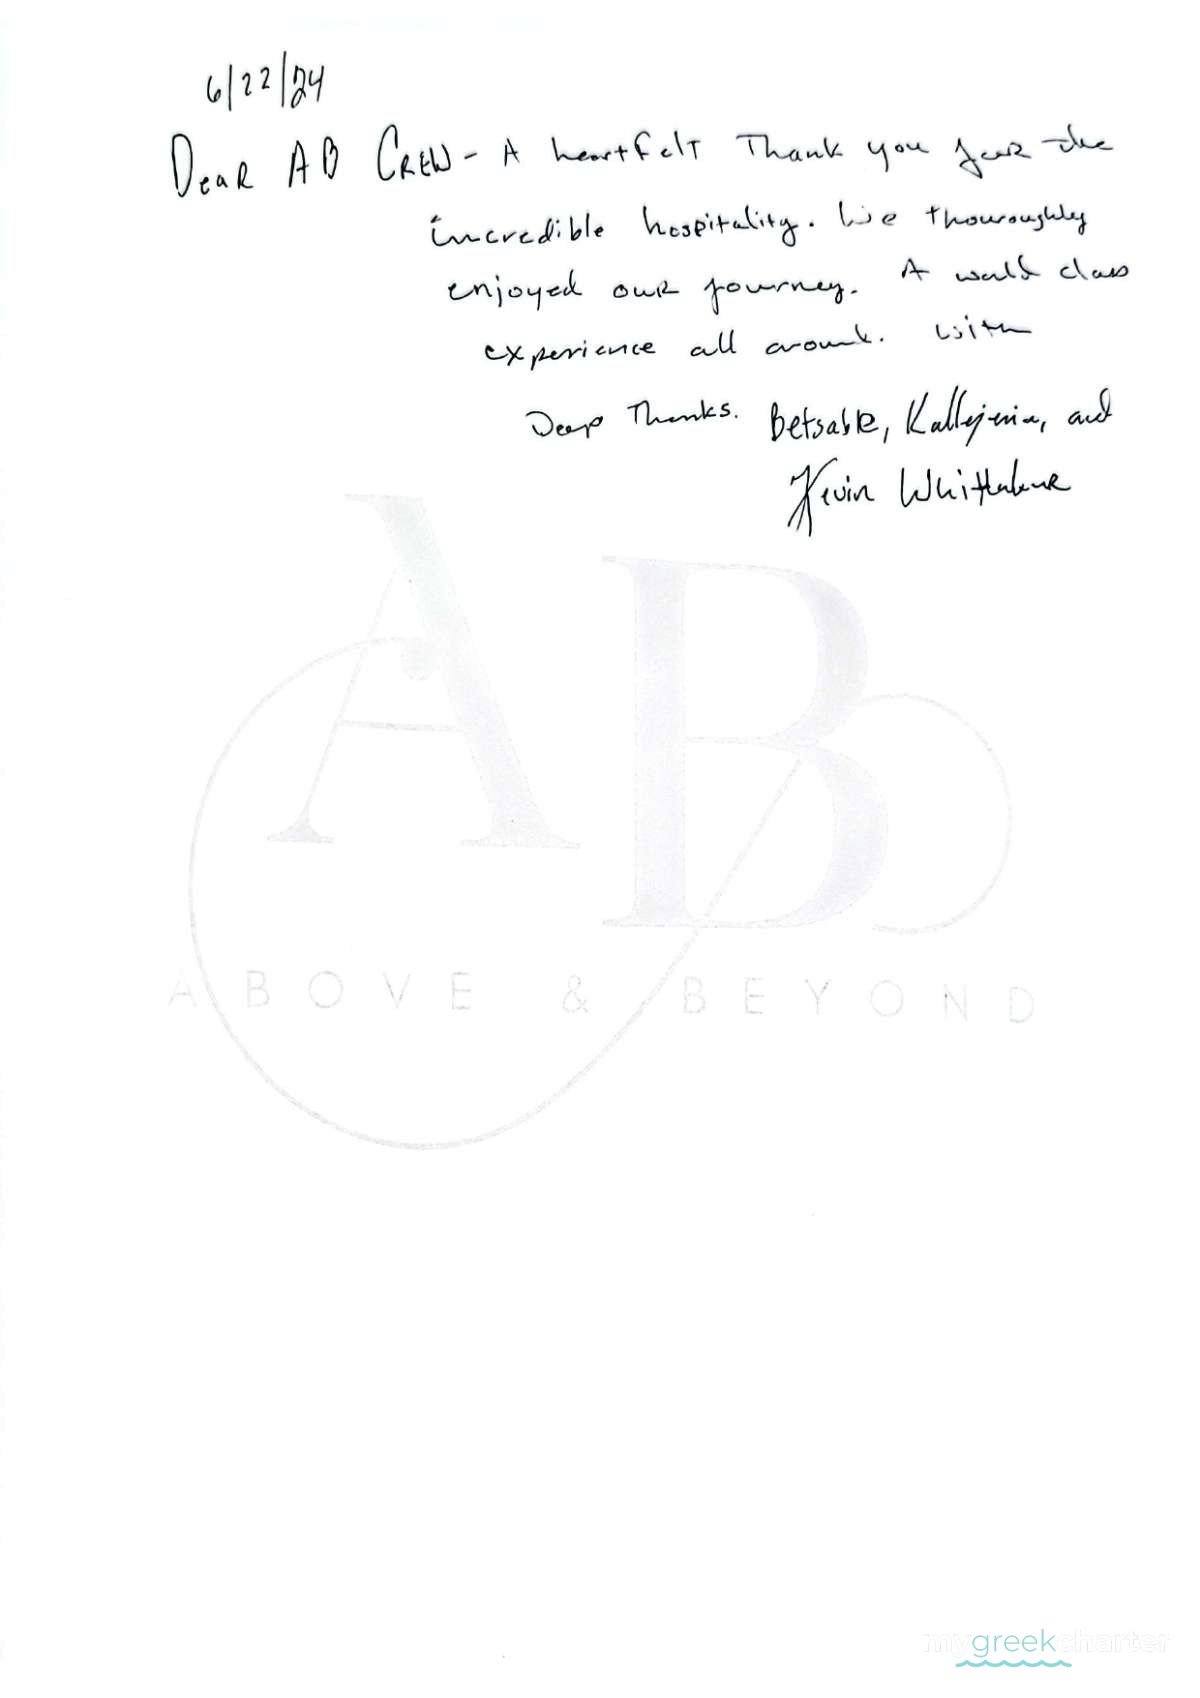 6/22/24
Dear AB Crew - A heartfelt Thank you for the
incredible hospitality. We thouroughly
enjoyed our journey. A world class
experience all around. With
Deep Thanks. Betsable, and
Kevin Whittaker
A B
ABOVE & BEYOND
mygreekcharter